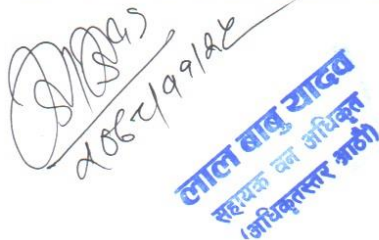 २०८१/११/२८
लाल बाबु यादव
सहायक वन अधिकृत
(अधिकृतस्तर आठौं)